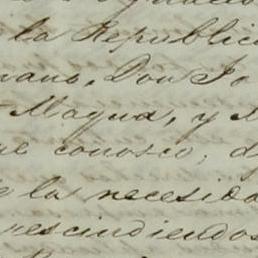 la Republic
mano, Don Jo
Magua, y M
que conosco, d
de la necesida
rescindiendos